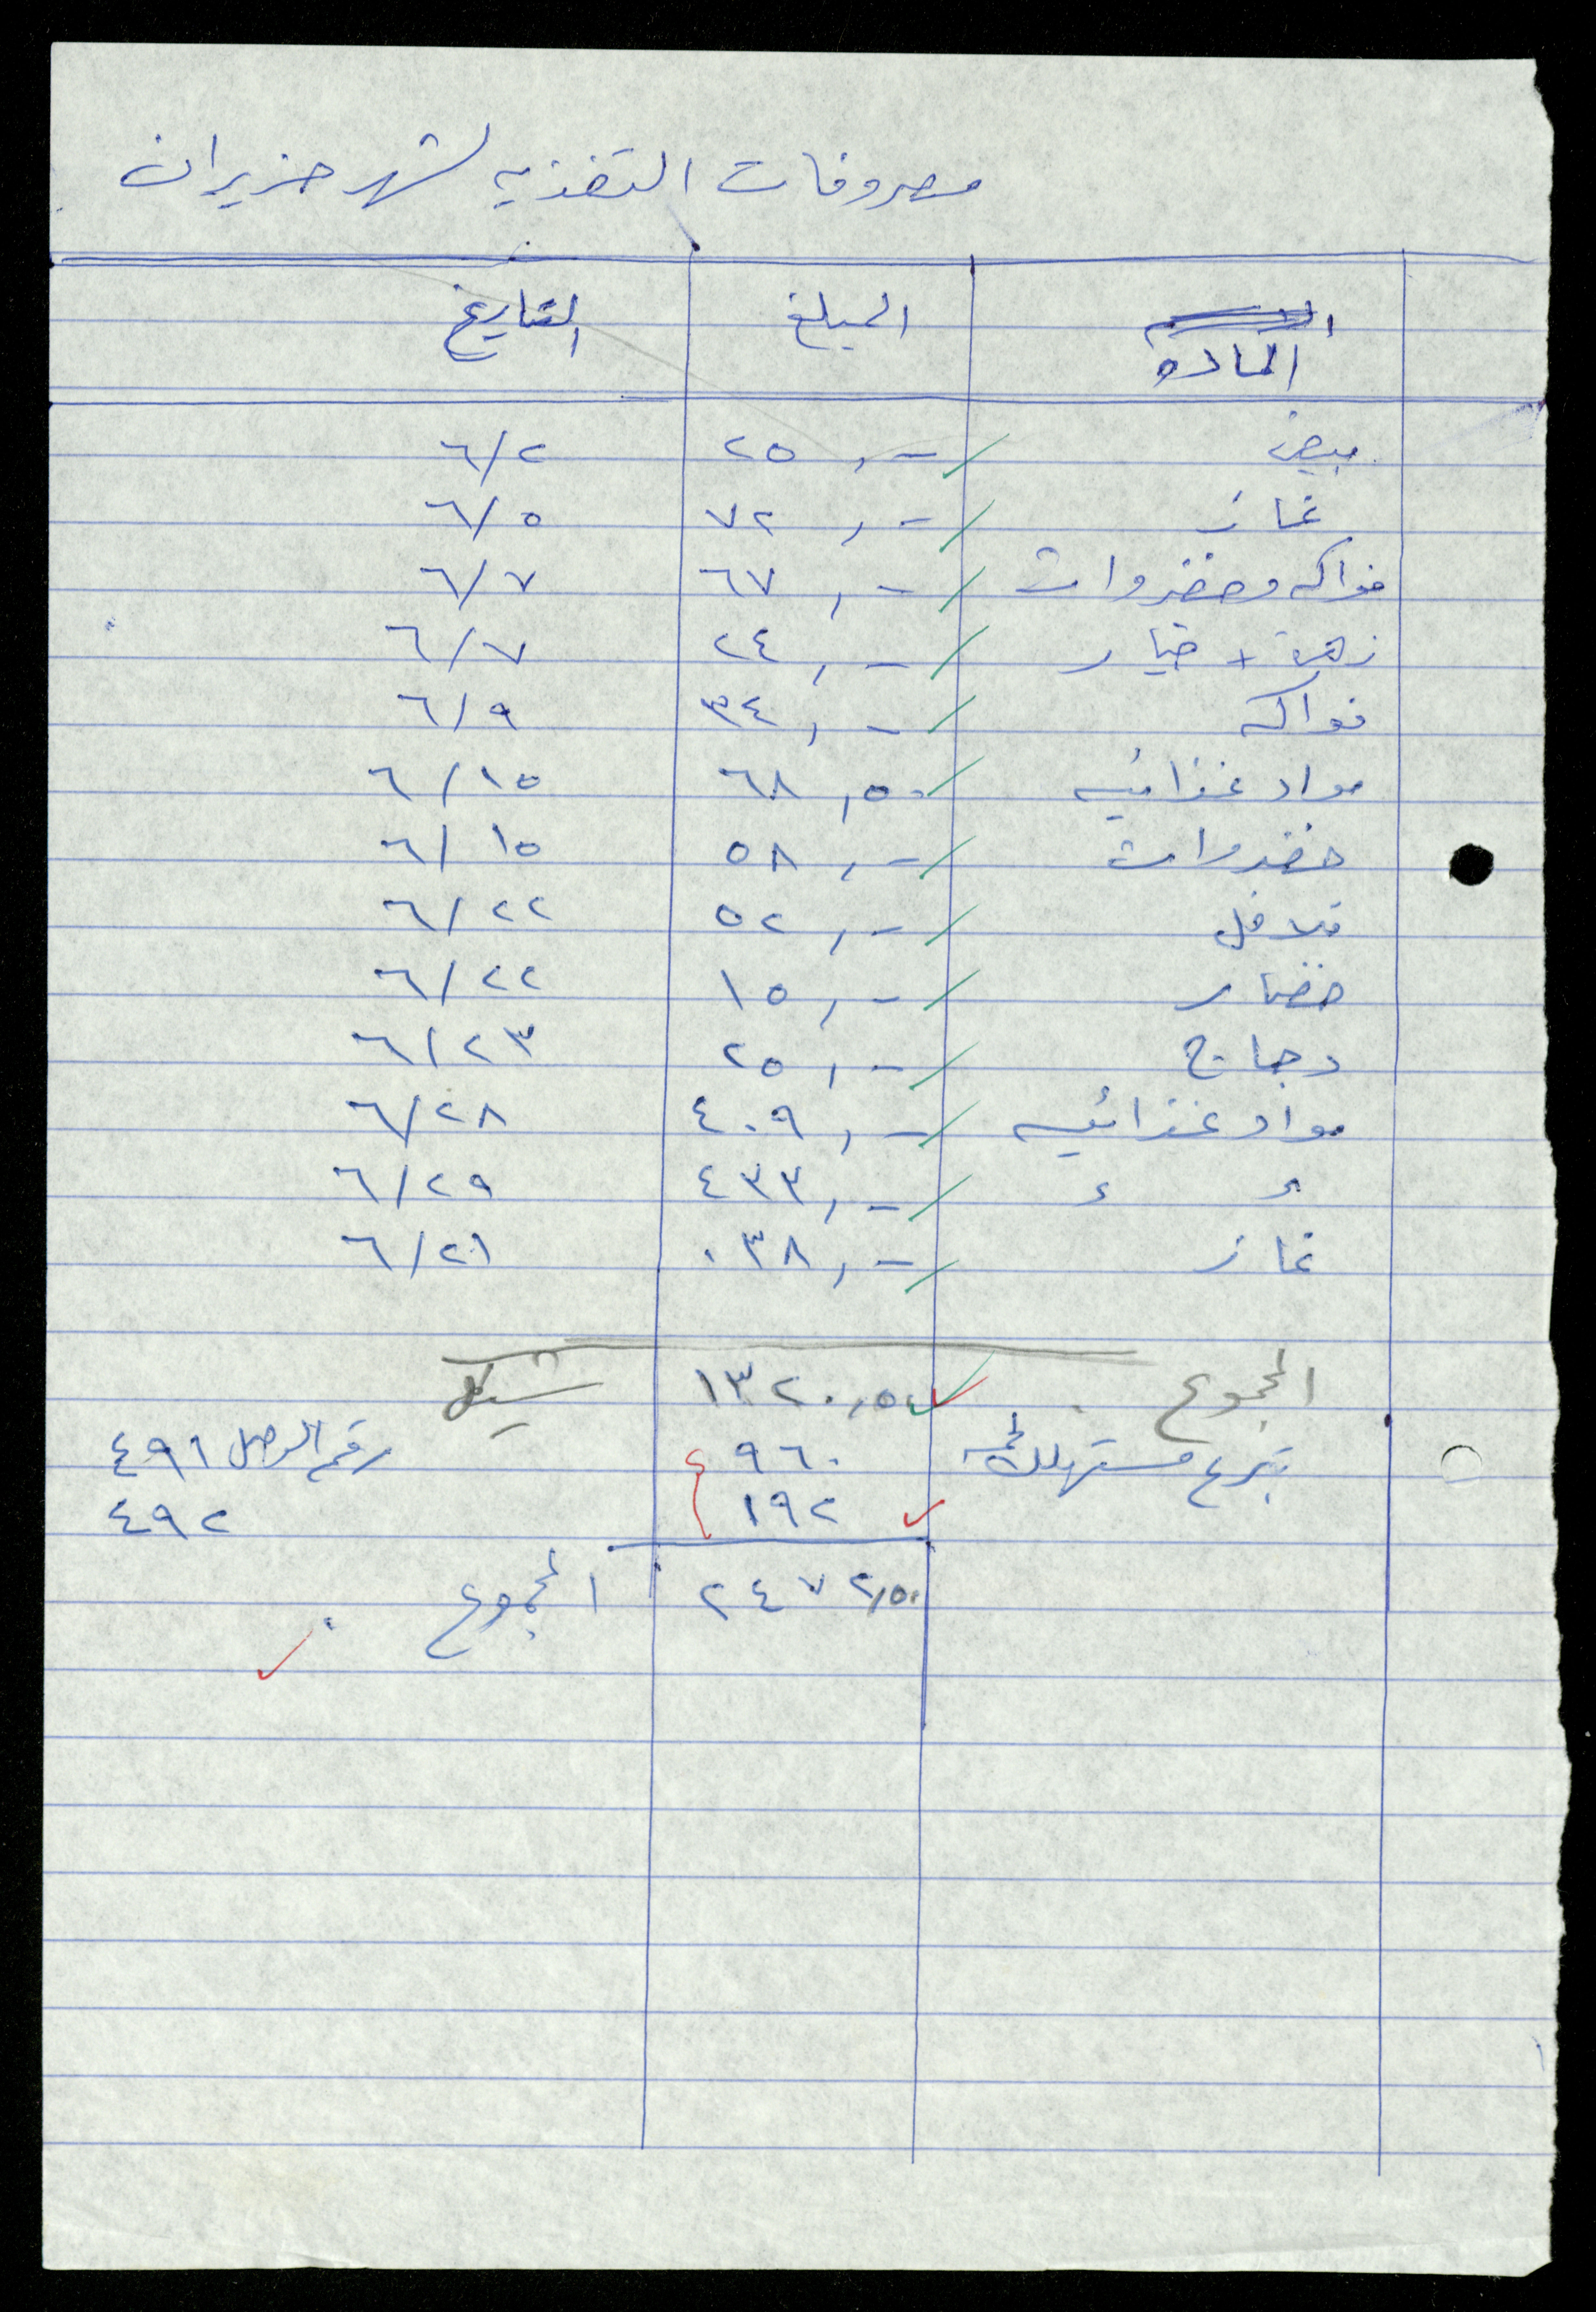 مصروفات التغذيه لشهر حزيران
الماده المبلغ التاريخ
بيض ٢٥,- ٦/٢
غاز ٧٢,- ٦/٥
فواكه وخضروات ٦٧,- ٦/٧
زهرة + خيار ٢٤,- ٦/٧
فواكه ٣٤,- ٦/٩
مواد غذائيه ٦٨,٥٠ ٦/١٥
خضروات ٥٨,- ٦/١٥
فلافل ٥٢,- ٦/٢٢
خضار ١٥,- ٦/٢٢
دجاج ٢٥,- ٦/٢٣
مواد غذائيه ٤٠٩,- ٦/٢٨
ء ء ٤٣٣,- ٦/٢٩
غاز ٠٣٨,- ٦/٢١
المجموع ١٣٢٠,٥٠ شيكل
تبرع مستهلك لحمه ٩٦٠ رقم الوصل ٤٩١
١٩٢ ٤٩٢
٢٤٧٢,٥٠ المجموع